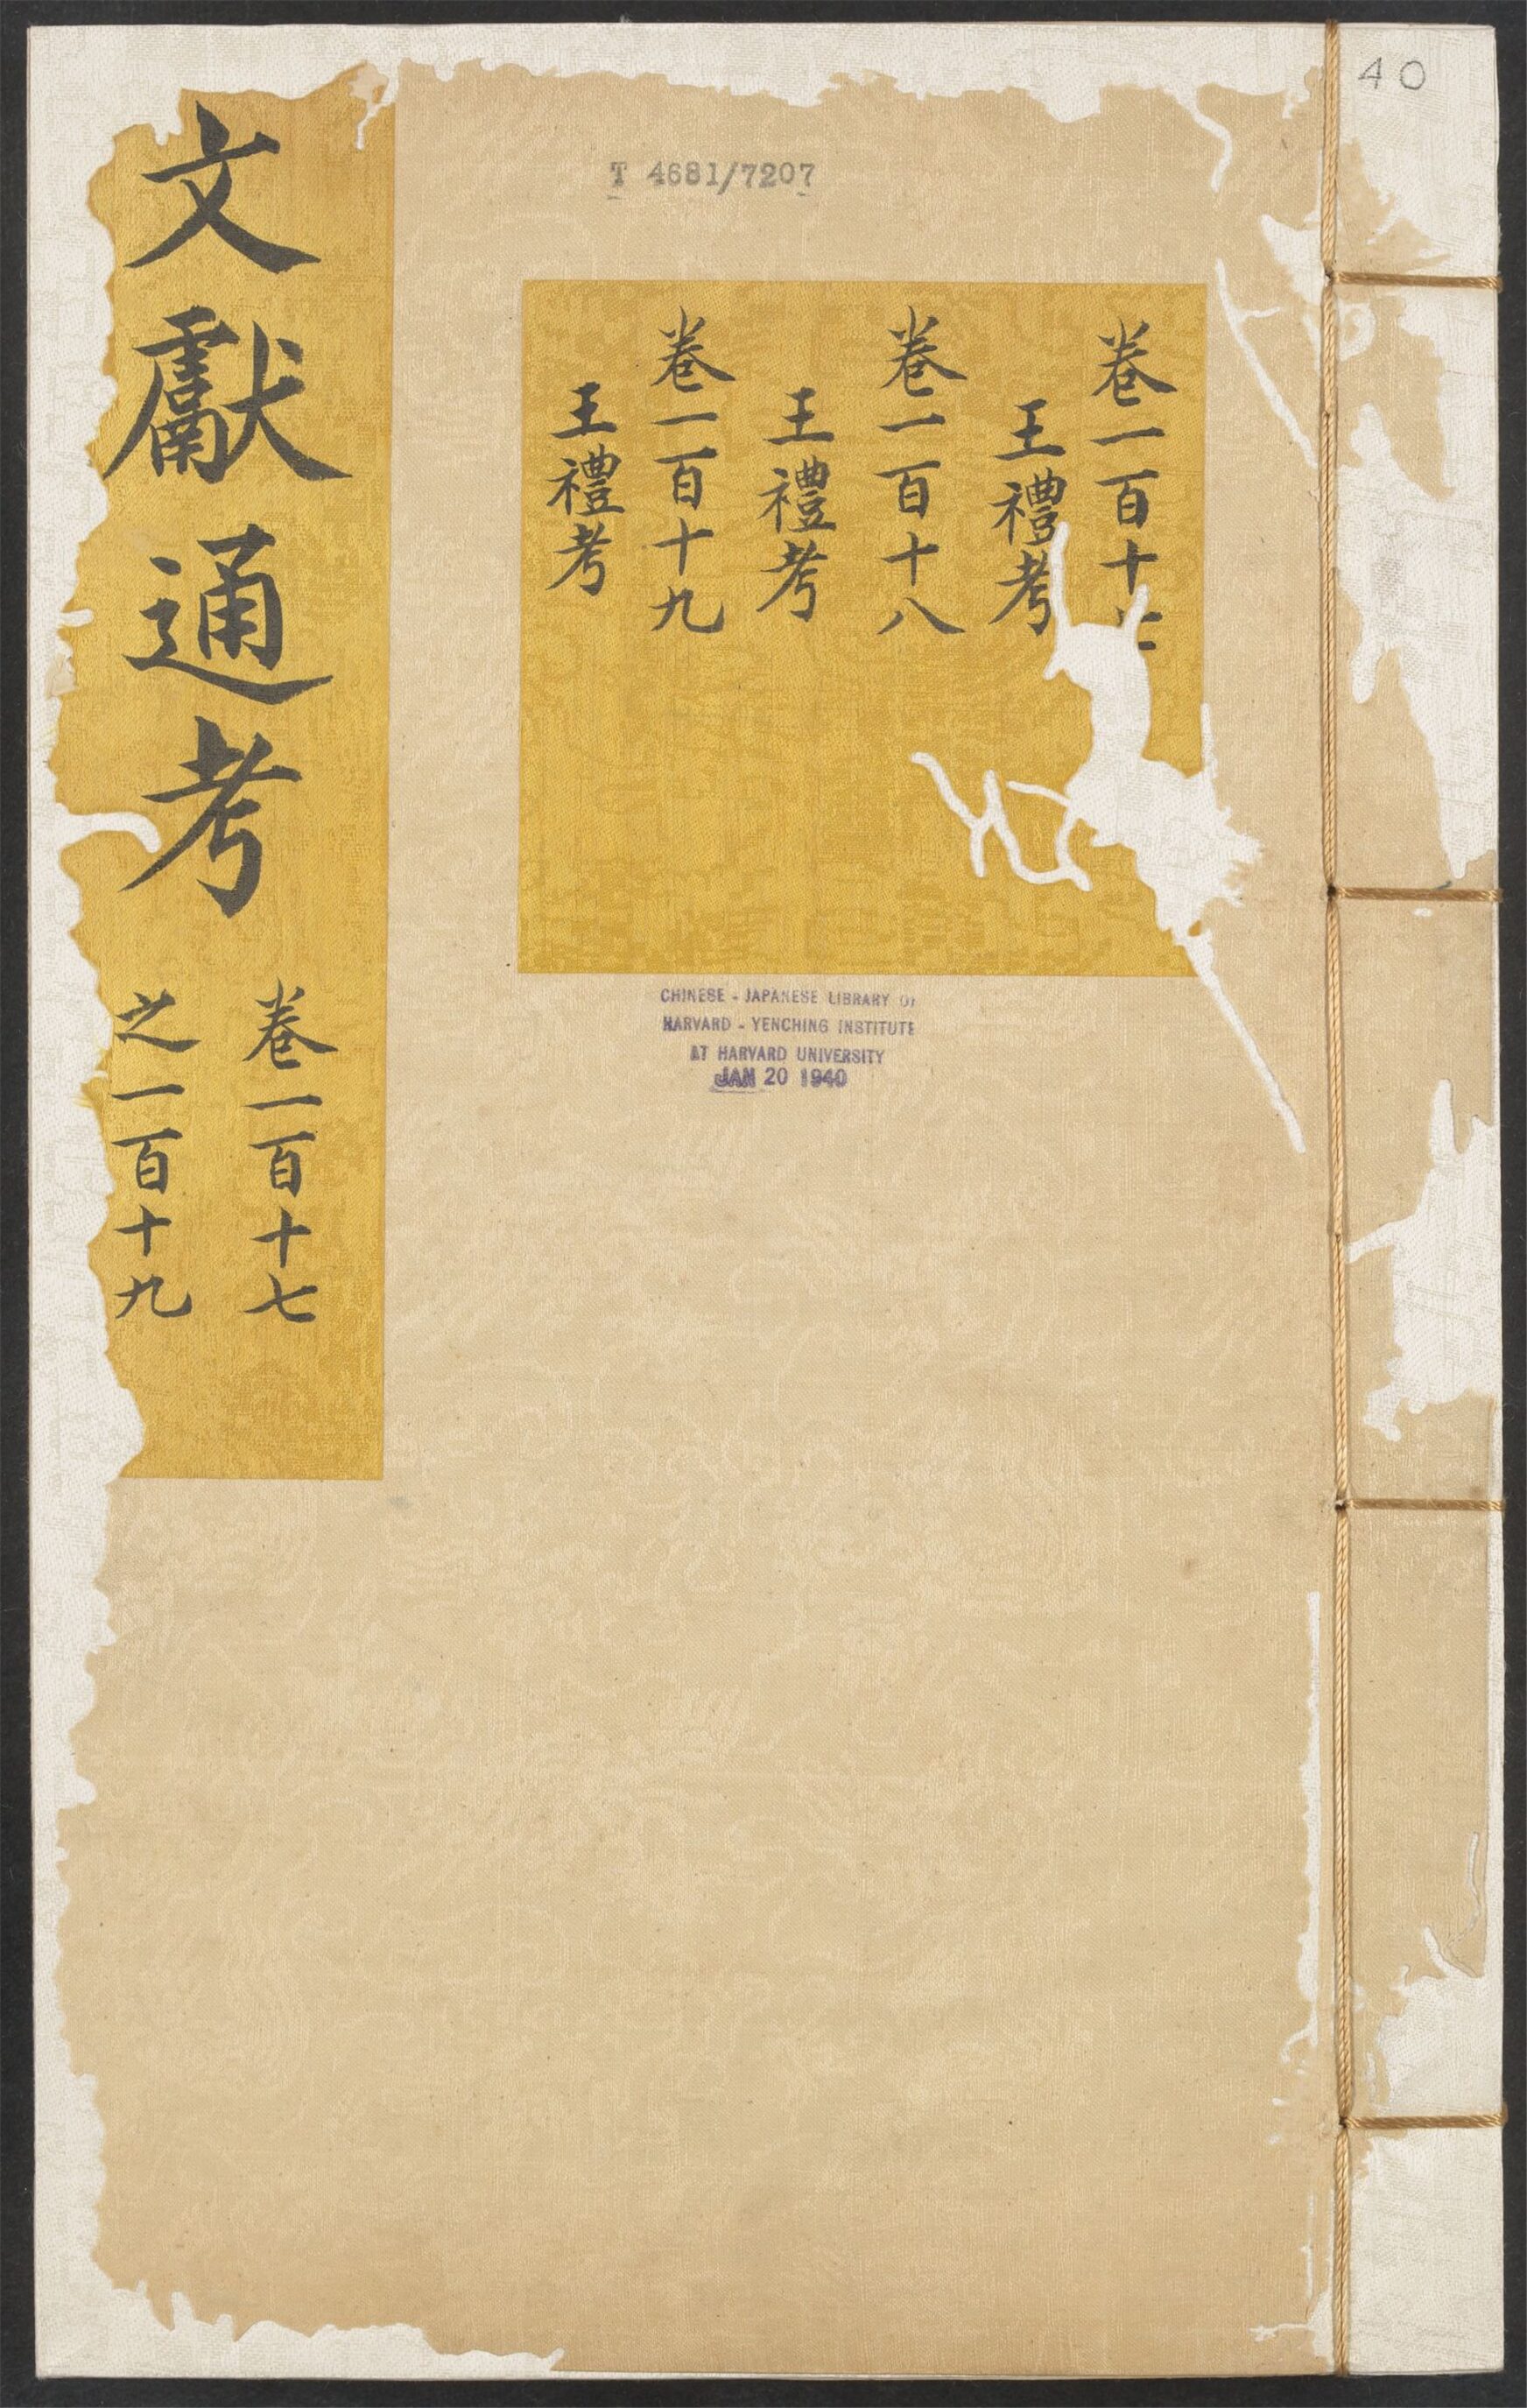 40
T 4681/7207
卷一百十七
王禮考
卷一百十八
王禮考
卷一百十九
王禮考
文獻通考
卷一百十七
之一百十九
CHINESE - JAPANESE LIBRARY OF
HARVARD - YENCHING INSTITUTE
AT HARVARD UNIVERSITY
JAN 20 1940